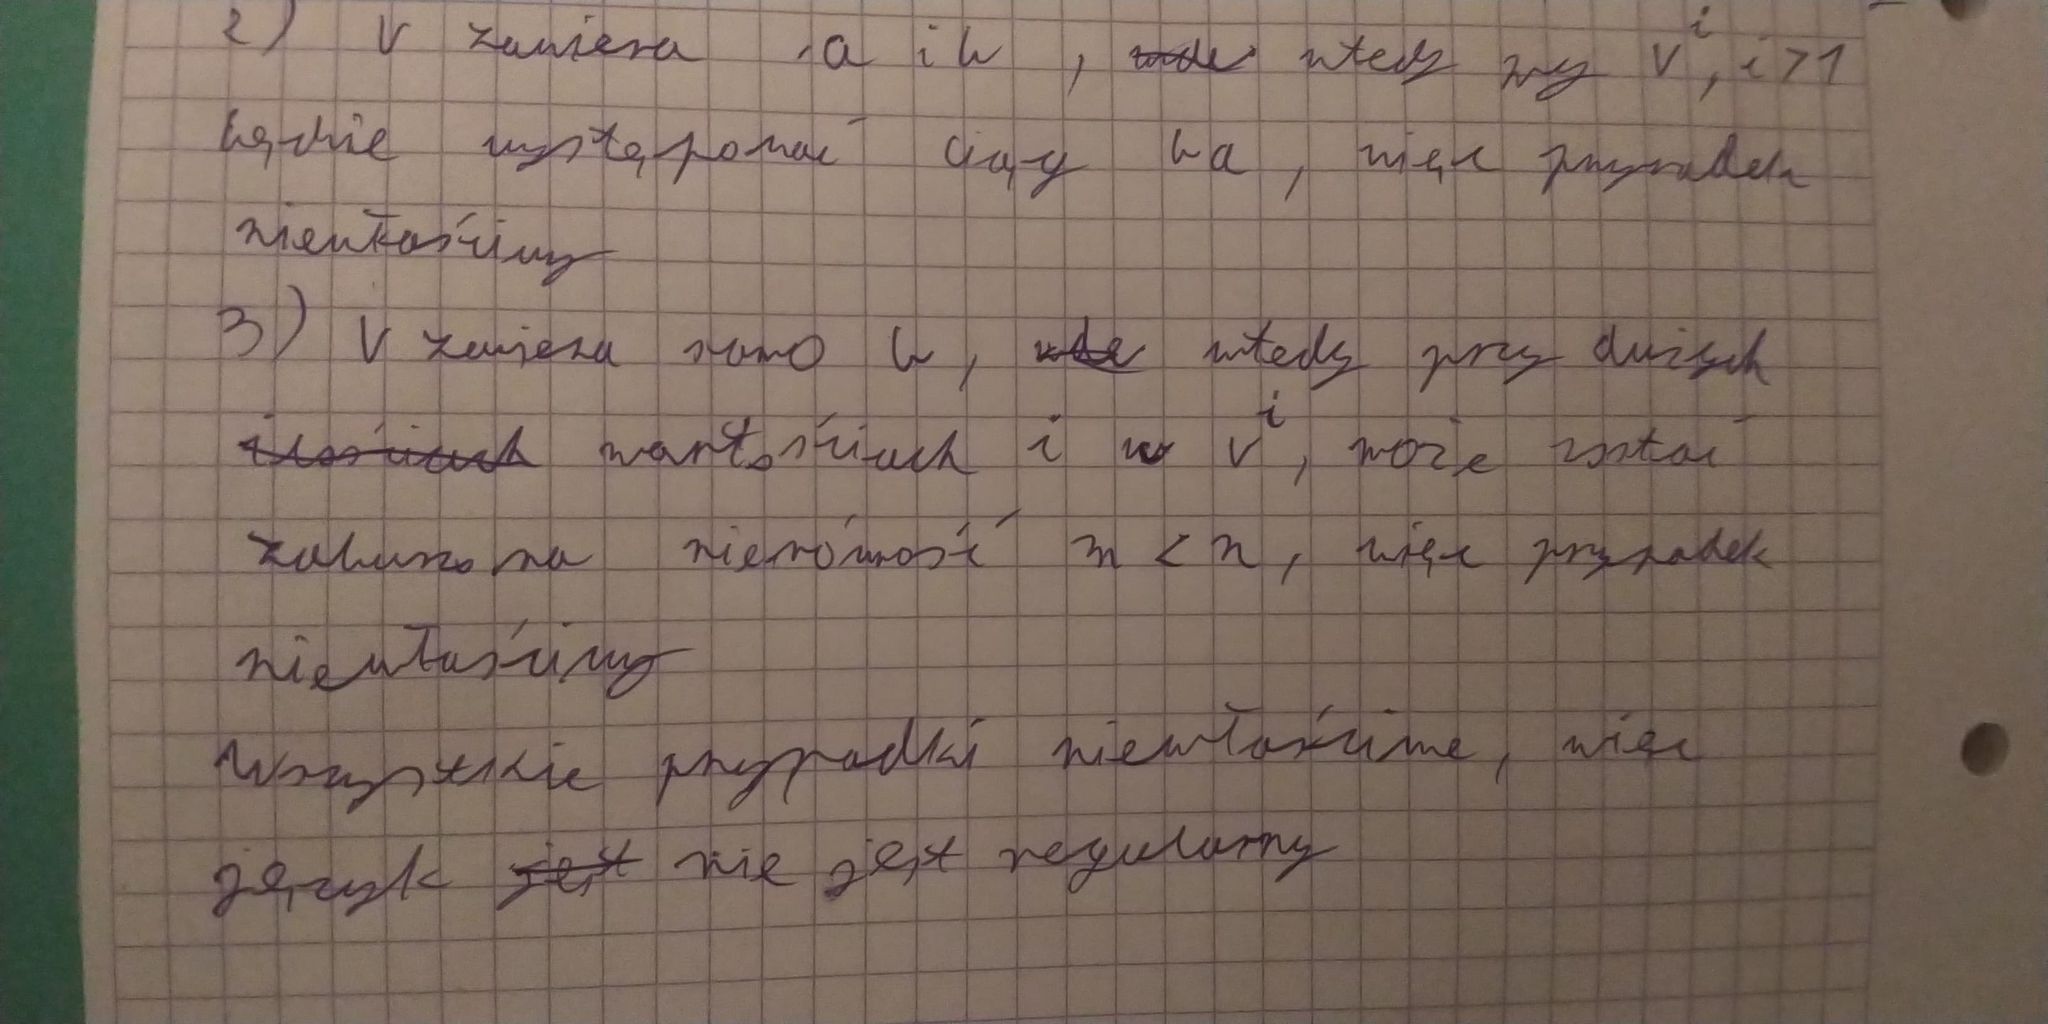 2) V zawiera a i b, wtedy przy vⁱ, i>1
będzie występować ciąg ba, więc przypadek
niewłaściwy
3) V zawiera samo b, wtedy przy dużych
wartościach i w vⁱ, może zostać
zaburzona nierówność m < n, więc przypadek
niewłaściwy
Wszystkie przypadki niewłaściwe, więc
język jest nie jest regularny